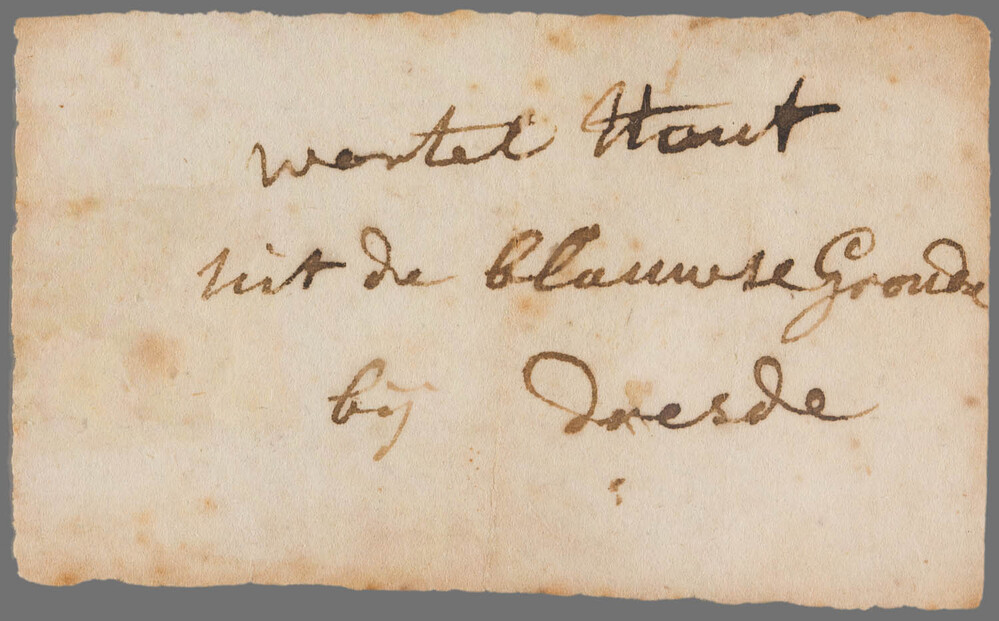 wortel Hout
uit de blauwse Gronde
bij Dresde